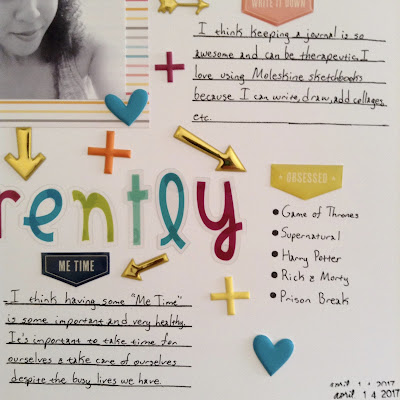 WRITE IT DOWN
I think keeping a journal is so
awesome and can be therapeutic. I
love using Moleskine sketchbooks
because I can write, draw, add collages
etc.
rently
OBSESSED
Game of Thrones
Supernatural
Harry Potter
Rick & Morty
Prison Break
ME TIME
I think having some "Me Time"
is some important and very healthy.
It's important to take time for
ourselves & take care of ourselves
despite the busy lives we have.
april 14 2017
april 14 2017